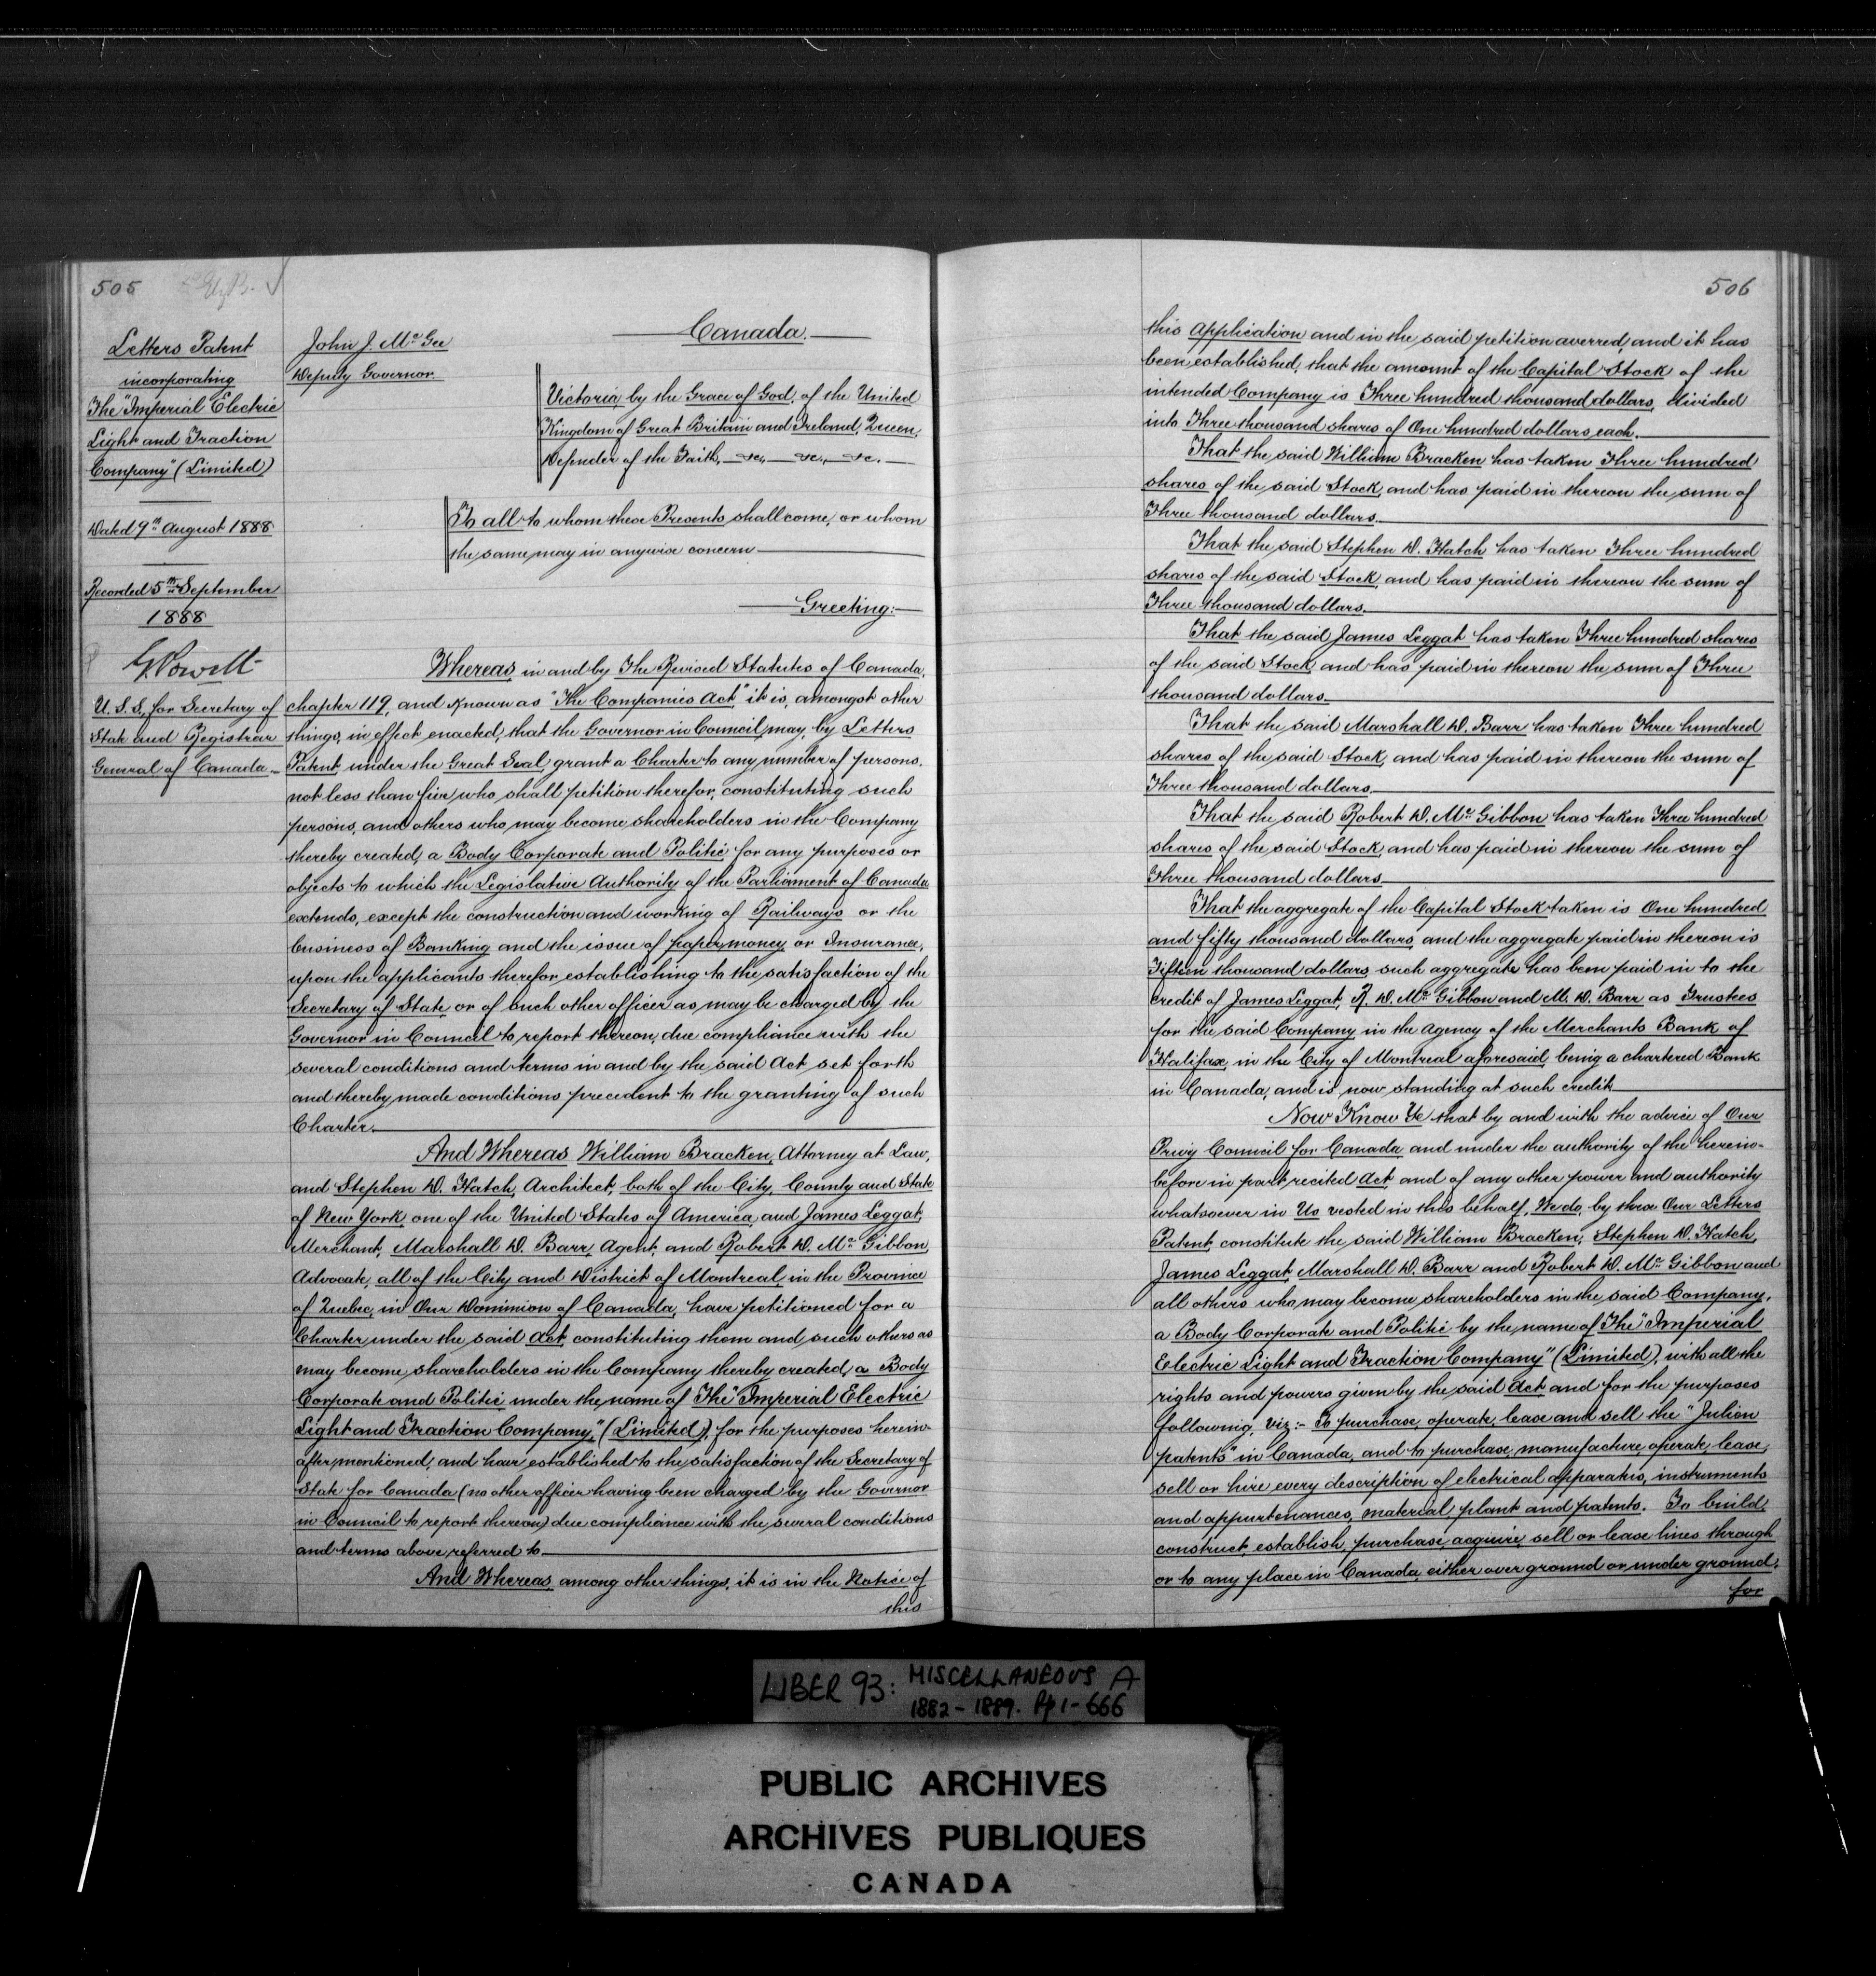 505
Letters Patent
incorporating
The "Imperial Electric
Light and Traction
Company" (Limited)
Dated 9th August 1888
Recorded 5th September
1888
G. Powell
U. S. S, for Secretary of
State and Registrar
General of Canada.
John J. McGee
Deputy Governor.
Canada.
Victoria, by the Grace of God, of the United
Kingdom of Great Britain and Ireland, Queen,
Defender of the Faith, &c, &c, &c.
To all to whom these Presents shall come, or whom
the same may in anywise concern
Greeting:
Whereas, in and by The Revised Statutes of Canada,
chapter 119, and known as "The Companies Act" it is, amongst other
things, in effect enacted, that the Governor in Council, may, by Letters
Patent, under the Great Seal, grant a Charter to any number of persons,
not less than five, who shall petition therefor, constituting such
persons, and others who may become shareholders in the Company
thereby created, a Body Corporate and Politic for any purposes or
objects to which the Legislative Authority of the Parliament of Canada
extends, except the construction and working of Railways or the
business of Banking and the issue of paper money or Insurance,
upon the applicants therefor establishing to the satisfaction of the
Secretary of State or of such other officer as may be charged by the
Governor in Council to report thereon, due compliance with the
several conditions and terms in and by the said Act set forth
and thereby made conditions precedent to the granting of such
Charter.
And Whereas William Bracken, Attorney at Law,
and Stephen D. Hatch, Architect, both of the City, County and State
of New York, one of the United States of America, and James Leggat,
Merchant, Marshall D. Barr, Agent, and Robert D. McGibbon,
Advocate, all of the City and District of Montreal, in the Province
of Quebec, in Our Dominion of Canada, have petitioned for a
Charter under the said Act, constituting them and such others as
may become shareholders in the Company thereby created, a Body
Corporate and Politic under the name of The "Imperial Electric
Light and Traction Company," (Limited), for the purposes herein-
after mentioned, and have established to the satisfaction of the Secretary of
State for Canada (no other officer having been charged by the Governor
in Council to report thereon) due compliance with the several conditions
and terms above referred to.
And Whereas, among other things, it is in the Notice of
this
506
this Application and in the said petition averred, and it has
been established, that the amount of the Capital Stock of the
intended Company is Three hundred thousand dollars, divided
into Three thousand shares of One hundred dollars each.
That the said William Bracken has taken Three hundred
shares of the said Stock, and has paid in thereon the sum of
Three thousand dollars.
That the said Stephen D. Hatch has taken Three hundred
shares of the said Stock, and has paid in thereon the sum of
Three thousand dollars.
That the said James Leggat has taken Three hundred shares
of the said Stock, and has paid in thereon the sum of Three
thousand dollars.
That the said Marshall D. Barr has taken Three hundred
shares of the said Stock, and has paid in thereon the sum of
Three thousand dollars.
That the said Robert D. McGibbon has taken Three hundred
shares of the said Stock, and has paid in thereon the sum of
Three thousand dollars
That the aggregate of the Capital Stock taken is One hundred
and fifty thousand dollars, and the aggregate paid in thereon is
Fifteen thousand dollars, such aggregate has been paid in to the
credit of James Leggat, R. D. McGibbon and M. D. Barr as Trustees
for the said Company in the Agency of the Merchants Bank of
Halifax, in the City of Montreal aforesaid, being a chartered Bank
in Canada, and is now standing at such credit
Now Know Ye that by and with the advice of Our
Privy Council for Canada and under the authority of the herein-
before in part recited Act, and of any other power and authority
whatsoever in Us vested in this behalf, We do, by these Our Letters
Patent, constitute the said William Bracken, Stephen D. Hatch,
James Leggat, Marshall D. Barr and Robert D. McGibbon and
all others who may become shareholders in the said Company,
a Body Corporate and Politic by the name of The "Imperial
Electric Light and Traction Company" (Limited), with all the
rights and powers given by the said Act and for the purposes
following, viz:- To purchase, operate, lease and sell the "Julien
patents" in Canada, and to purchase, manufacture, operate, lease,
sell or hire every description of electrical apparatus, instruments
and appurtenances, material, plant and patents. To build,
construct, establish, purchase, acquire, sell or lease lines through
or to any place in Canada, either over ground or under ground,
for
LIBER 93: MISCELLANEOUS A
1882-1889. Pp 1-666
PUBLIC ARCHIVES
ARCHIVES PUBLIQUES
CANADA